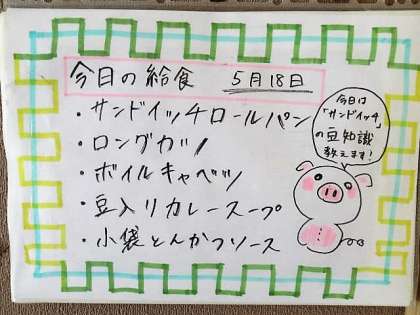 今日の給食 5月18日
・サンドイッチロールパン
・ロングカツ
・ボイルキャベツ
・豆入りカレースープ
・小袋とんかつソース
今日は
「サンドイッチ」
の豆知識
教えます!